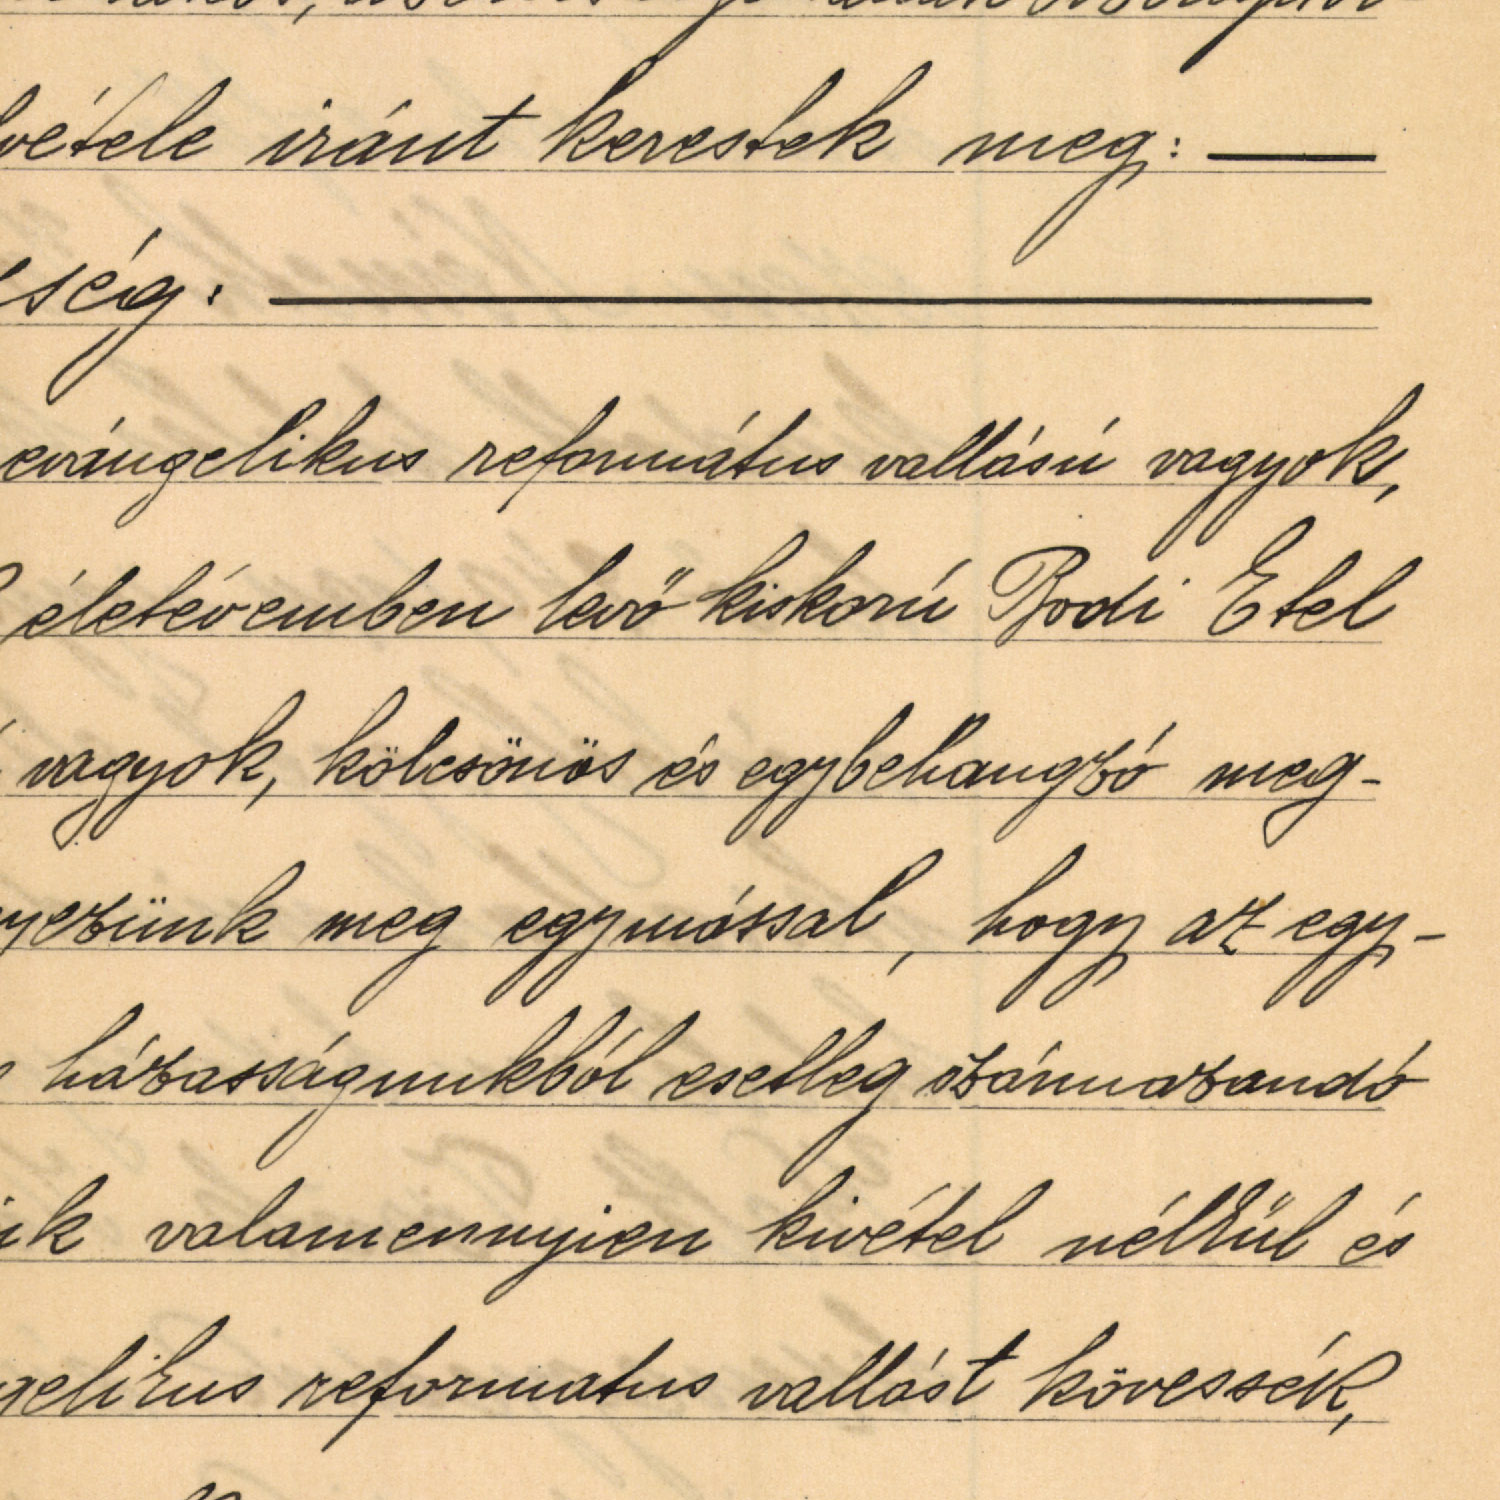 vétele iránt kerestek meg: —
ség: —
evángelikus református vallású vagyok,
életévemben levő kiskorú Bodi Etel
vagyok, kölcsönös és egybehangzó meg-
yezünk meg egymással, hogy az egy-
házasságunkból esetleg származandó
ink valamennyien kivétel nélkül és
gelikus reformatus vallást kövessék,